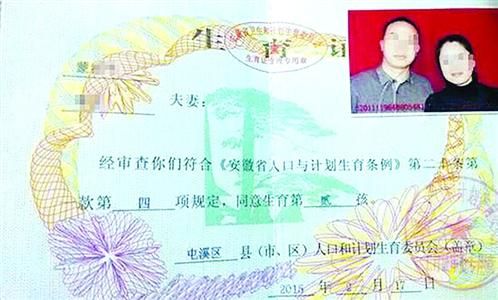 生育证
生育证明专用章
夫妻：
经审查你们符合《安徽省人口与计划生育条例》第二十条第
款第 四 项规定，同意生育第 贰 孩。
屯溪区 县（市、区）人口和计划生育委员会（盖章）
2015 年 2 月 17 日